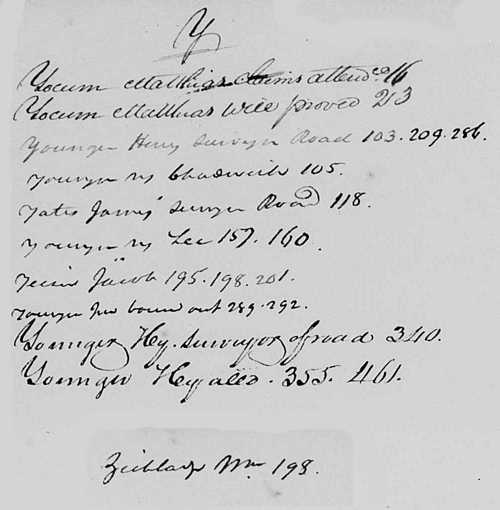 Y
Yocum Matthias Claims attend.ce 16
Yocum Matthias Will proved 213
Younger Henry Surveyor Road 103. 209. 286.
Younger vs Chadwick 105.
Yates James Survyr Road 118.
Younger vs Lee 157. 160.
Jacob 195. 198. 201.
Younger bound out 289. 292.
Younger Hy. Surveyor of road 340.
Younger Hy. 355. 461.
Wm 198.